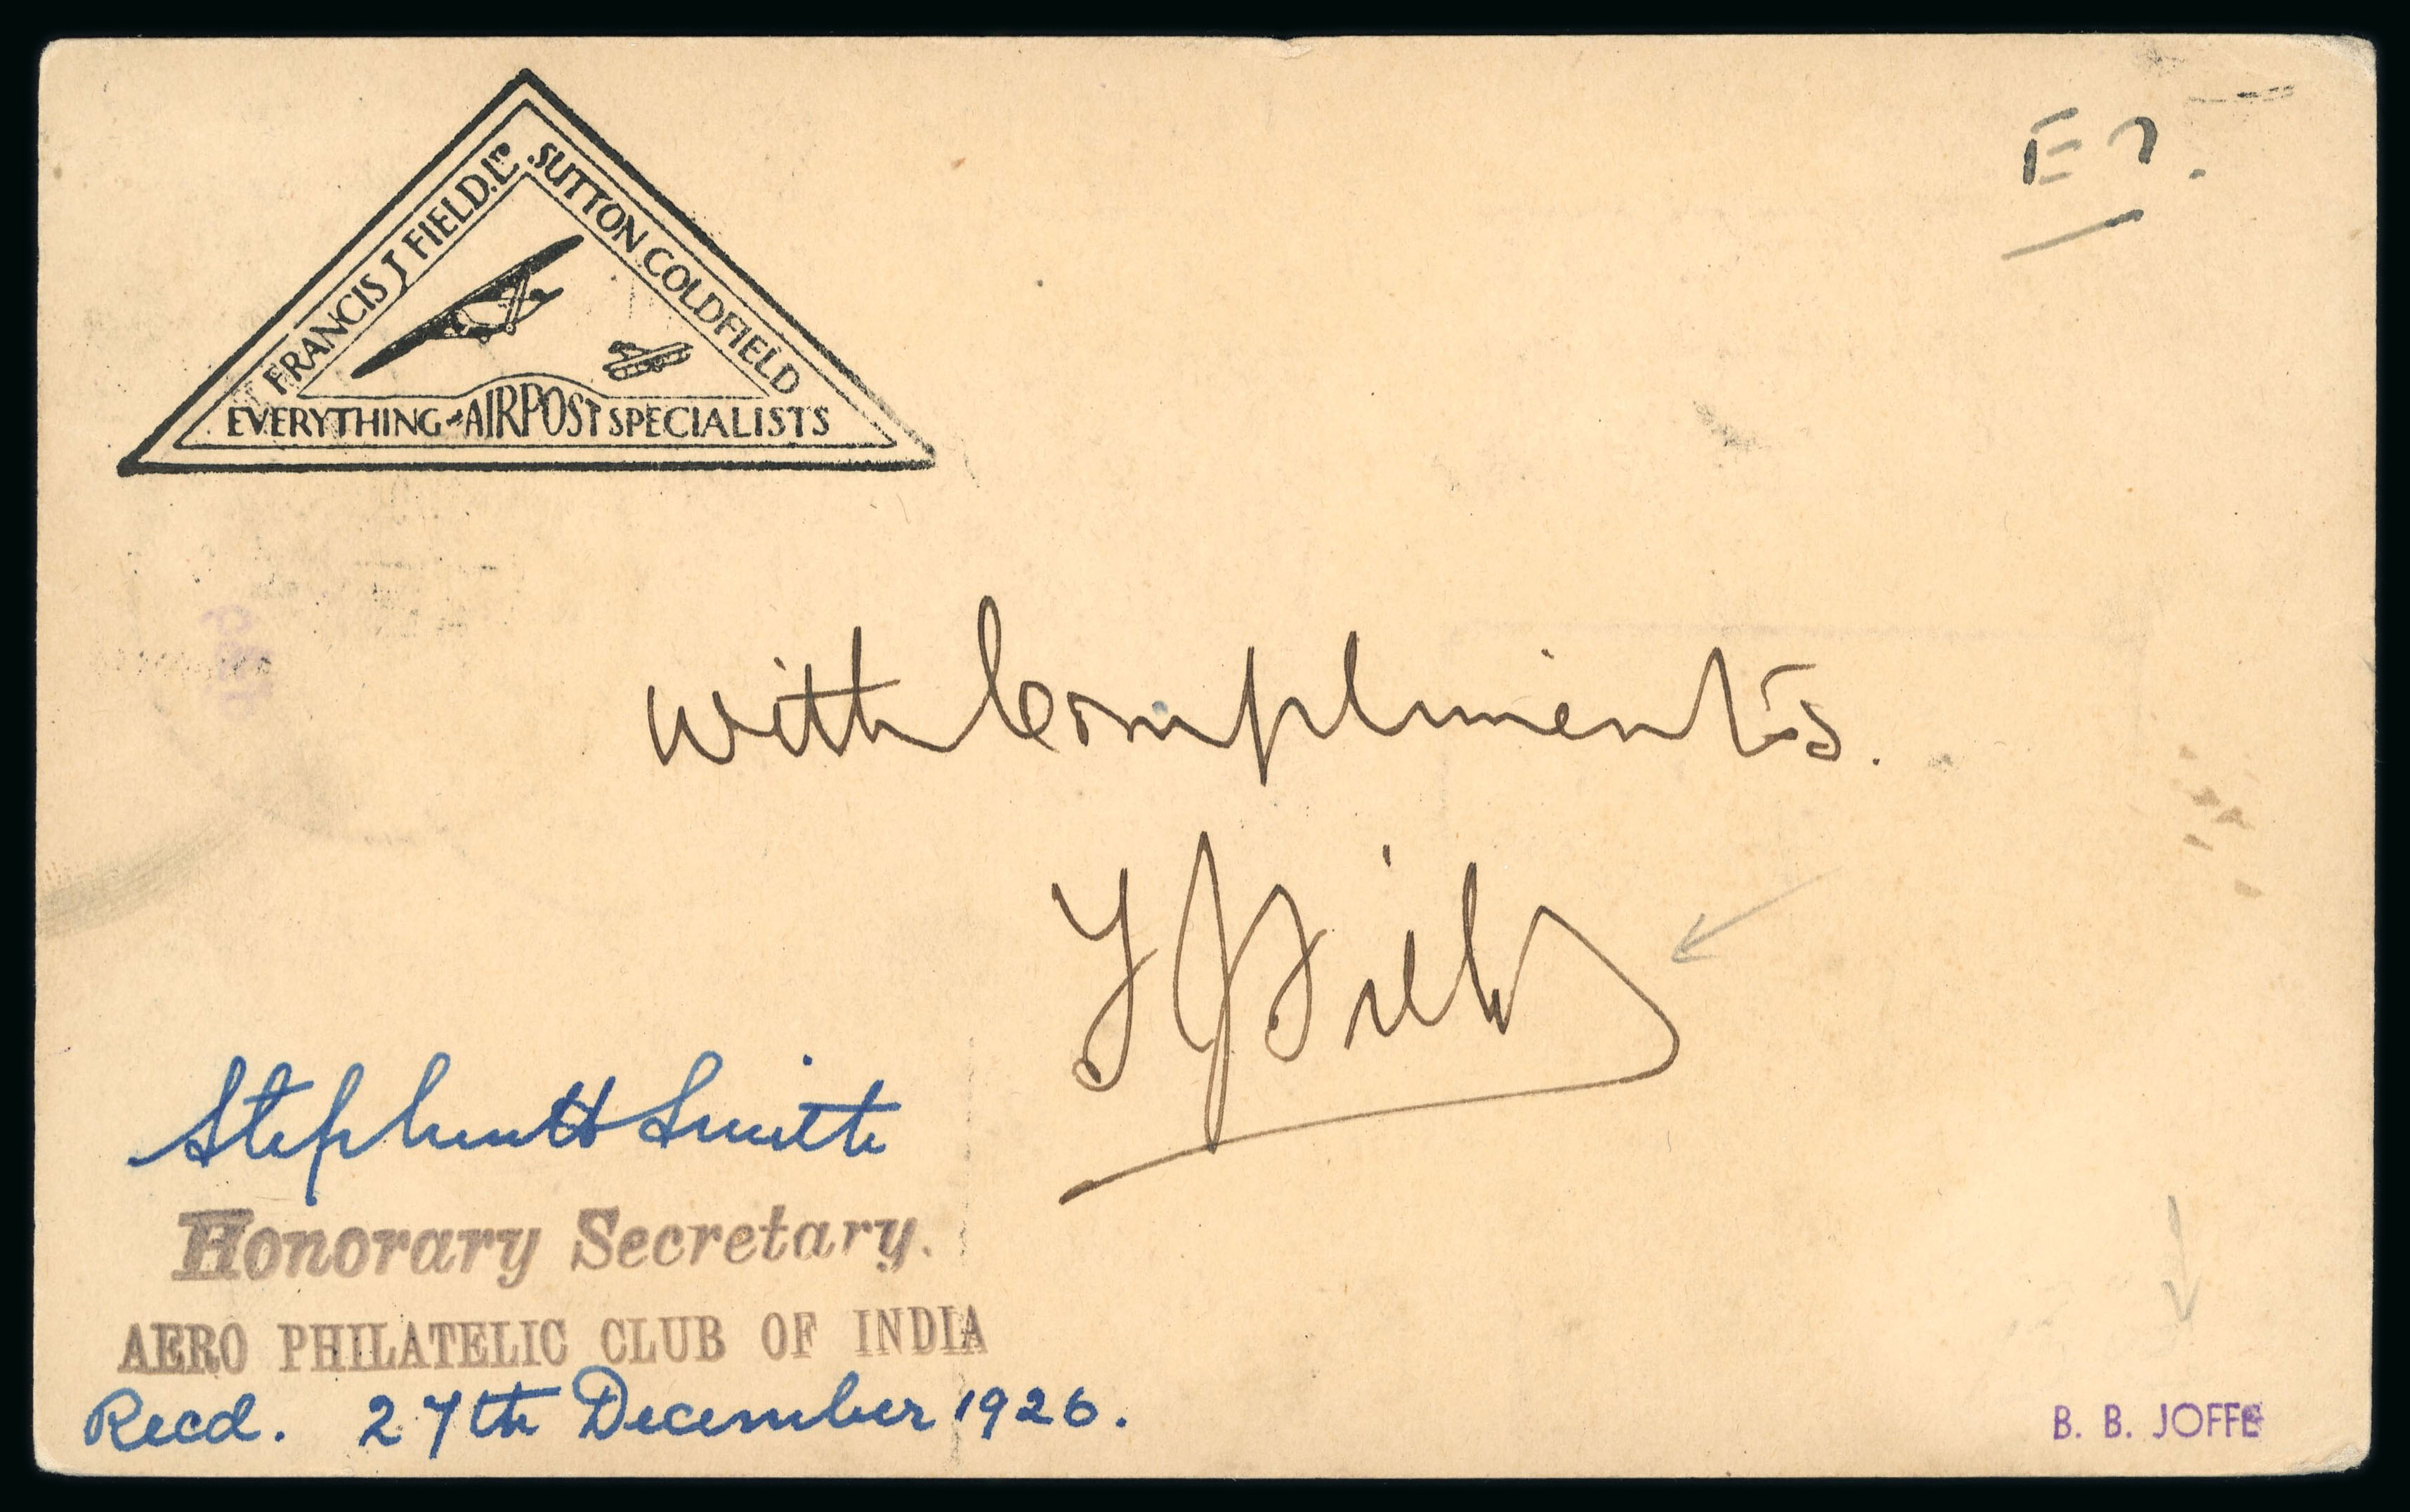 FRANCIS J FIELD. LTD
SUTTON COLDFIELD
EVERYTHING-AIRPOST SPECIALISTS
E7.
with Compliments.
F J Field
Stephen H Smith
Honorary Secretary.
AERO PHILATELIC CLUB OF INDIA
Recd. 27th December 1926.
B. B. JOFFE